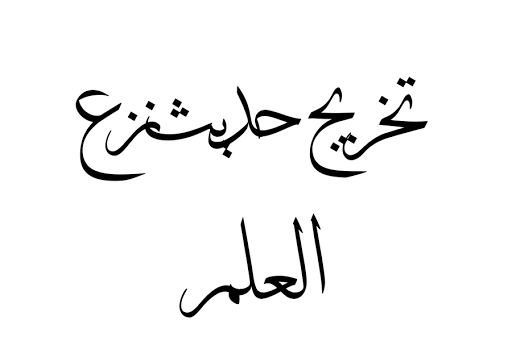 تخريج حديث نزع
العلم